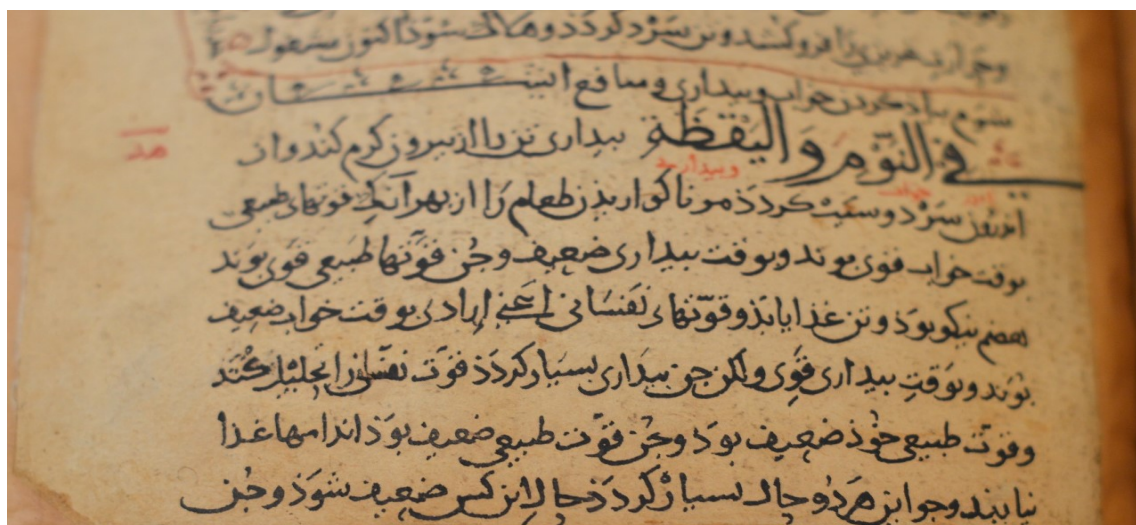 وحرارت غریزی را فروکشد وتن سرد کردذ وهلاک شوذ اکنون
بیداری ومنافع
فی النوم والیقظة بیداری تن را از بیرون کرم کند واز
وبیداری
خواب
اندرون سرد وسبب کردذ مر ناکواریدن طعام را از بهر آنک قوتهاء طبیعی
بوقت خواب قوی بوند وبوقت بیداری ضعیف وجن قوتها طبیعی قوی بوند
هضم نیکو بوذ وتن غذا یابذ وقوتهاء نفسانی اعنی ارادی بوقت خواب ضعیف
بوند وبوقت بیداری قوی ولکن جن بیداری بسیار کردذ قوت نفسانی را تحلیل کند
وقوت طبیعی خوذ ضعیف بوذ وجن قوت طبیعی ضعیف بوذ اندامها غذا
نیابند وجو این هر دو حال بسیار کردذ حال این کس ضعیف شوذ وجن